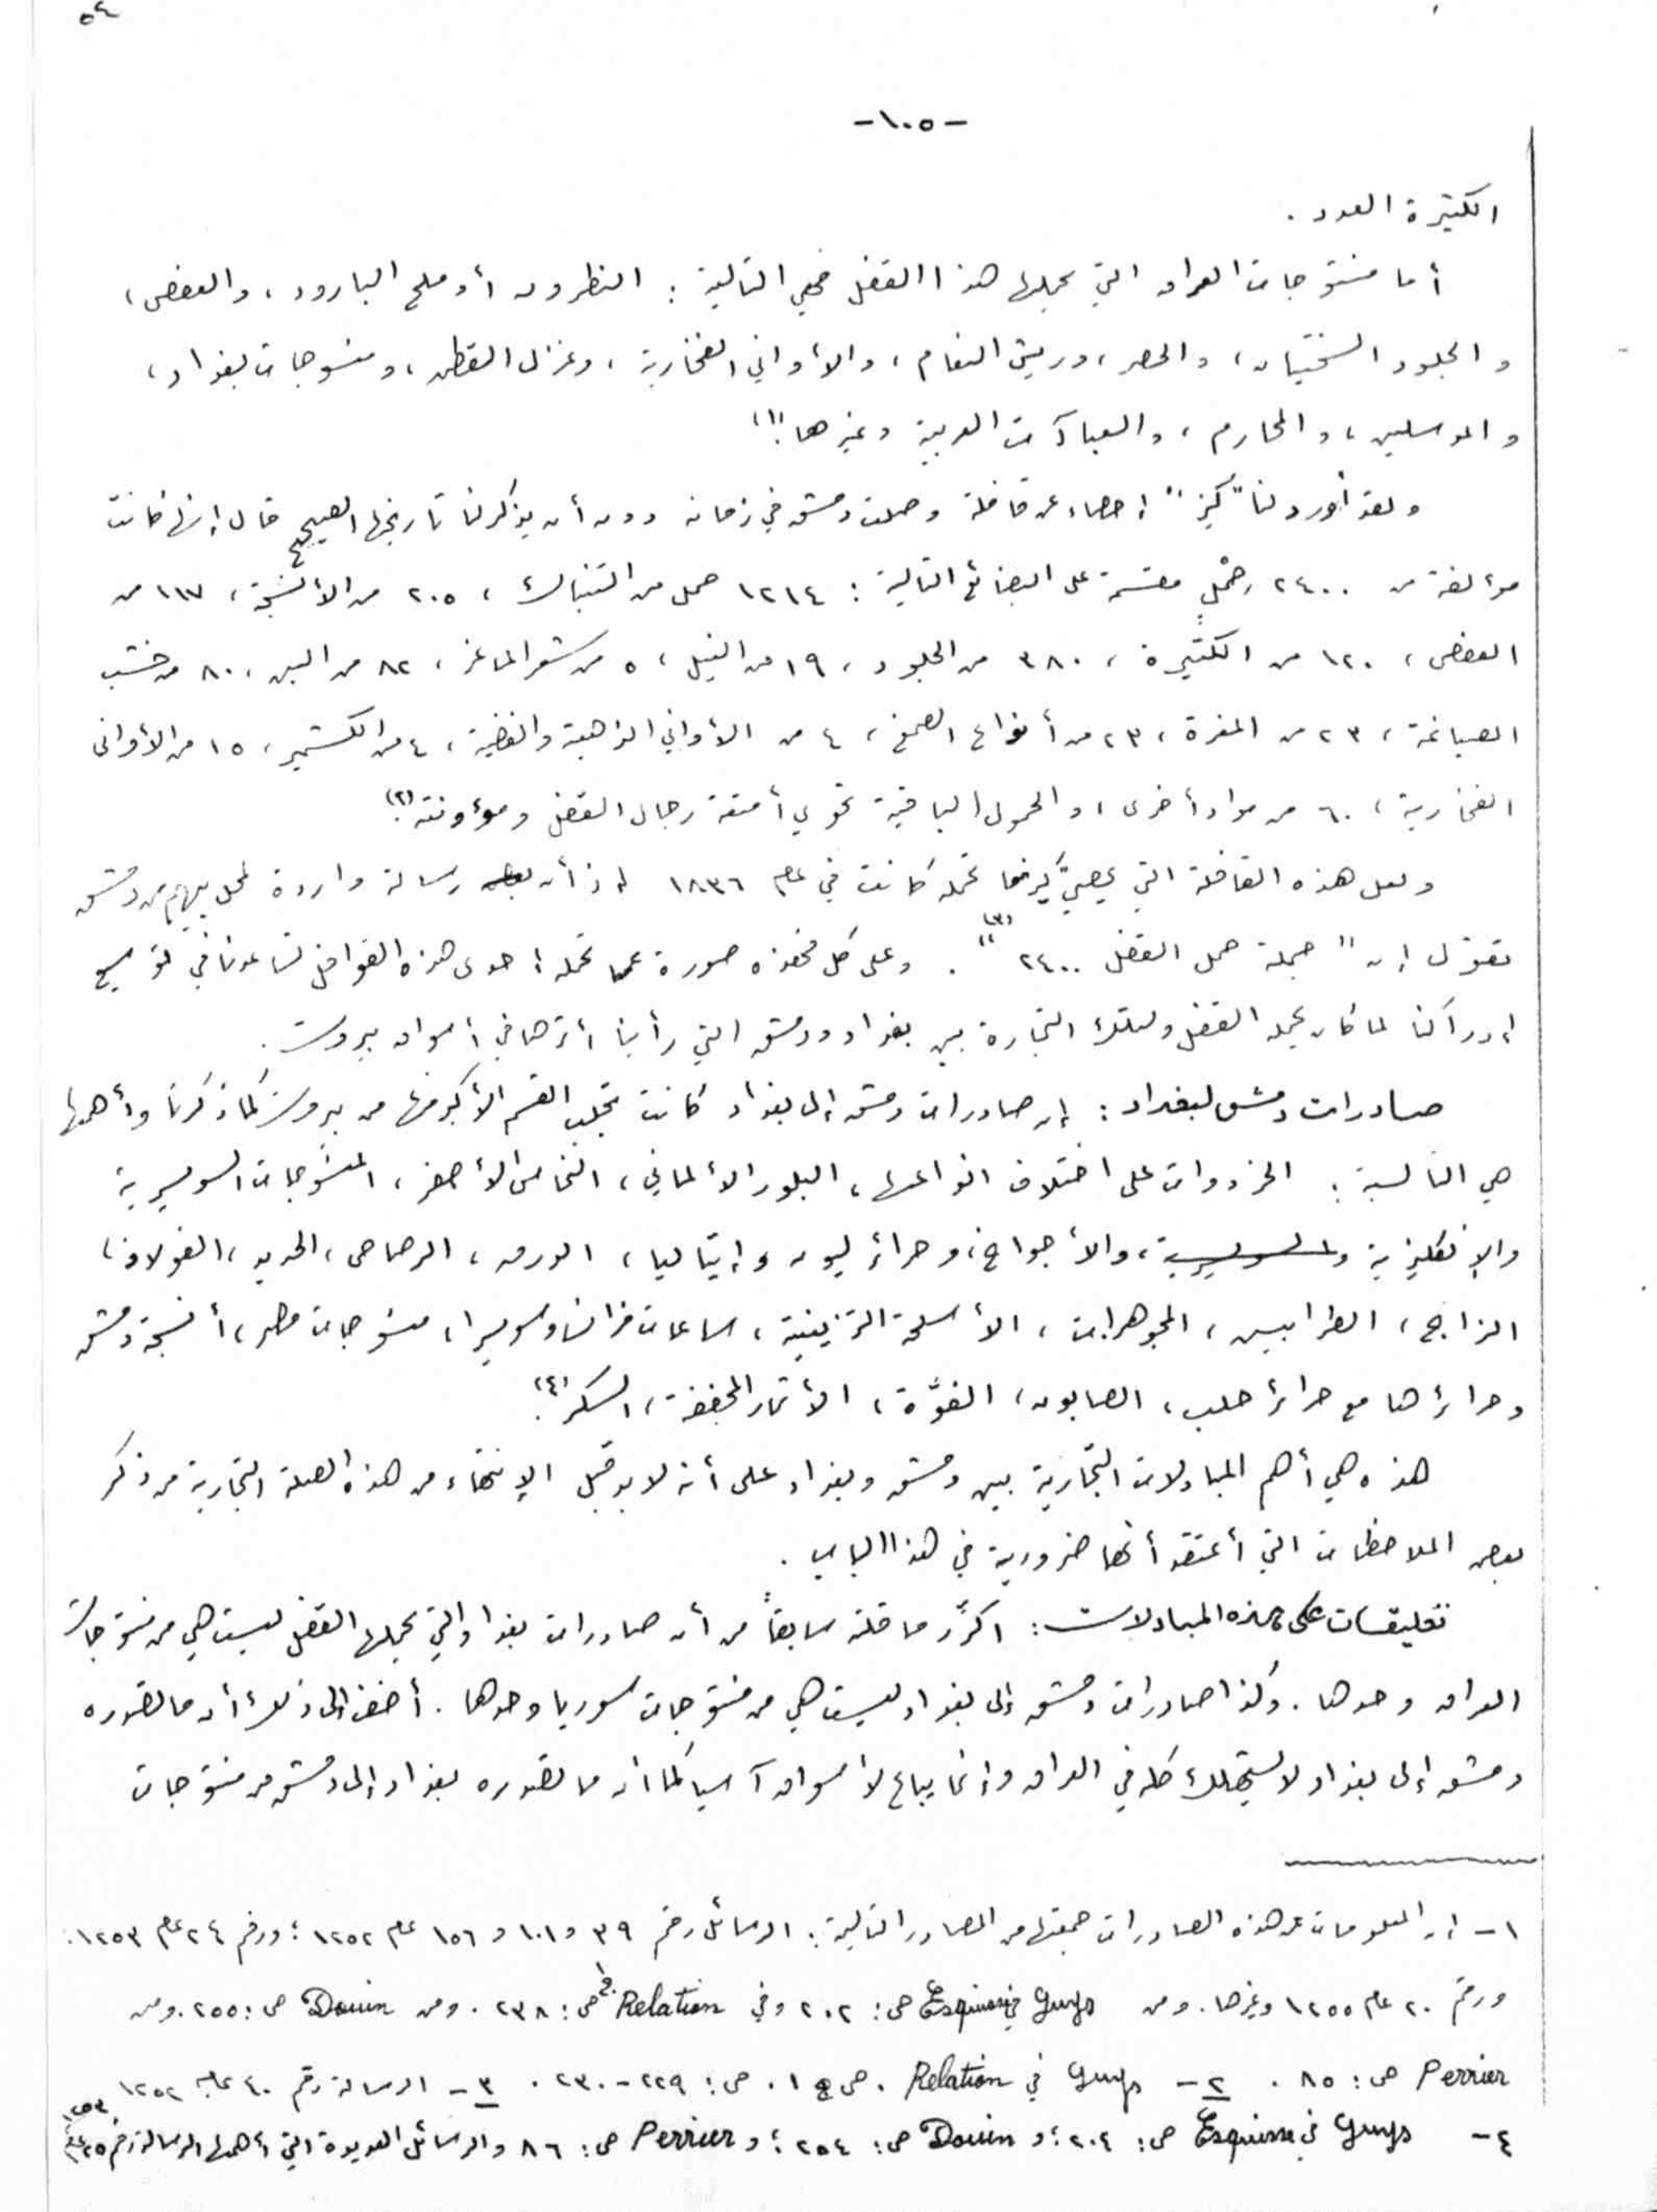 ٥٤
-١٠٥-
الكثيرة العدد .
أما منتوجات العراق التي يحملها هذا القفل فهي التالية : النطرون أو ملح البارود ، والعفص ،
والجلود السختيان ، والحصر ، وريش النعام ، والأواني الفخارية ، وغزل القطن ، ومنسوجات بغداد ،
والموسلين ، والمحارم ، والعباآت العربية وغيرها .(١)
ولقد أورد لنا "كيز" إحصاء عن قافلة وصلت دمشق في زمانه دون أن يذكر لنا تاريخها الصحيح قال إنها كانت
مؤلفة من ٢٤٠٠ حِمْلٍ مقسمة على البضائع التالية : ١٢١٤ حمل من التنباك ، ٢٠٥ من الأنسجة ، ١١٧ من
العفص ، ١٢٠ من الكثيرة ، ٣٨٠ من الجلود ، ١٩ من النيل ، ٥ من شعر الماعز ، ٨٢ من البن ، ٨٠ من خشب
الصباغة ، ٢٣ من المغرة ، ٢٣ من أنواع الصمغ ، ٤ من الأواني الذهبية والفضية ، ٤ من الكشمير ، ١٥ من الأواني
الفخارية ، ٦٠ من مواد أخرى ، والحمول الباقية تحوي أمتعة رجال القفل ومؤونته .(٢)
ولعل هذه القافلة التي يحصي كيز ما تحمله كانت في عام ١٨٣٦ إذ أن رسالة واردة لمحل بيهم من دمشق
تقول إن " جملة حمل القفل ٢٤٠٠ "(٣) . وعلى كل فهذه صورة عما تحمله احدى هذه القوافل تساعدنا في توسيع
إدراكنا لما كان يحمله القفل ولتلك التجارة بين بغداد ودمشق التي رأينا أثرها في أسواق بيروت .
صادرات دمشق لبغداد : إن صادرات دمشق إلى بغداد كانت تجلب القسم الأكبر منها من بيروت كما ذكرنا وأهمها
هي التالية : الخردوات على اختلاف انواعها ، البلور الألماني ، النحاس الأصفر ، المنسوجات السويسرية
والإنكليزية والسويسرية ، والأجواخ ، وحرائر ليون وإيتاليا ، الورق ، الرصاص ، الحديد ، الفولاذ ،
الزاج ، الطرابيش ، المجوهرات ، الأسلحة التزيينية ، ساعات فرانسا وسويسرا ، منسوجات مصر ، أنسجة دمشق
وحرائرها مع حرائر حلب ، الصابون ، الفوَّة ، الأثمار المجففة ، السكر .(٤)
هذه هي أهم المبادلات التجارية بين دمشق وبغداد على أنه لا بد قبل الإنتهاء من هذه الصلة التجارية من ذكر
بعض الملاحظات التي أعتقد أنها ضرورية في هذا الباب .
تعليقات على هذه المبادلات : اكرِّر ما قلته سابقاً من أن صادرات بغداد التي يحملها القفل ليست هي من منتوجات
العراق وحدها . وكذا صادرات دمشق إلى بغداد ليست هي من منتوجات سوريا وحدها . أضف إلى ذلك أن ما تصدره
دمشق إلى بغداد لا يستهلك كله في العراق وإنما يباع لأسواق آسيا كما أن ما تصدره بغداد إلى دمشق من منتوجات
١ - إن المعلومات عن هذه الصادرات جمعتها من المصادر التالية : الرسائل رقم ٣٩ و ١٠١ و ١٥٦ عام ١٢٥٢ ؛ ورقم ٢٤ عام ١٢٥٣ ؛
ورقم ٢٠ عام ١٢٥٥ وغيرها . ومن Guys في Esquisse ص : ٢٠٢ وفي Relation ج ١ ص : ٢٣٨ . ومن Douin ص : ٢٥٥ . ومن
Perrier ص : ٨٥ . ٢ - Guys في Relation . ١ . ص : ٢٢٩ - ٢٣٠ . ٣ - الرسالة رقم ٤٠ عام ١٢٥٢
٤ - Guys في Esquisse ص : ٢٠٤ ؛ و Douin ص : ٢٥٤ ؛ و Perrier ص : ٨٦ والرسائل العديدة التي أهمها الرسالة رقم ٢٥ عام ١٢٥٣